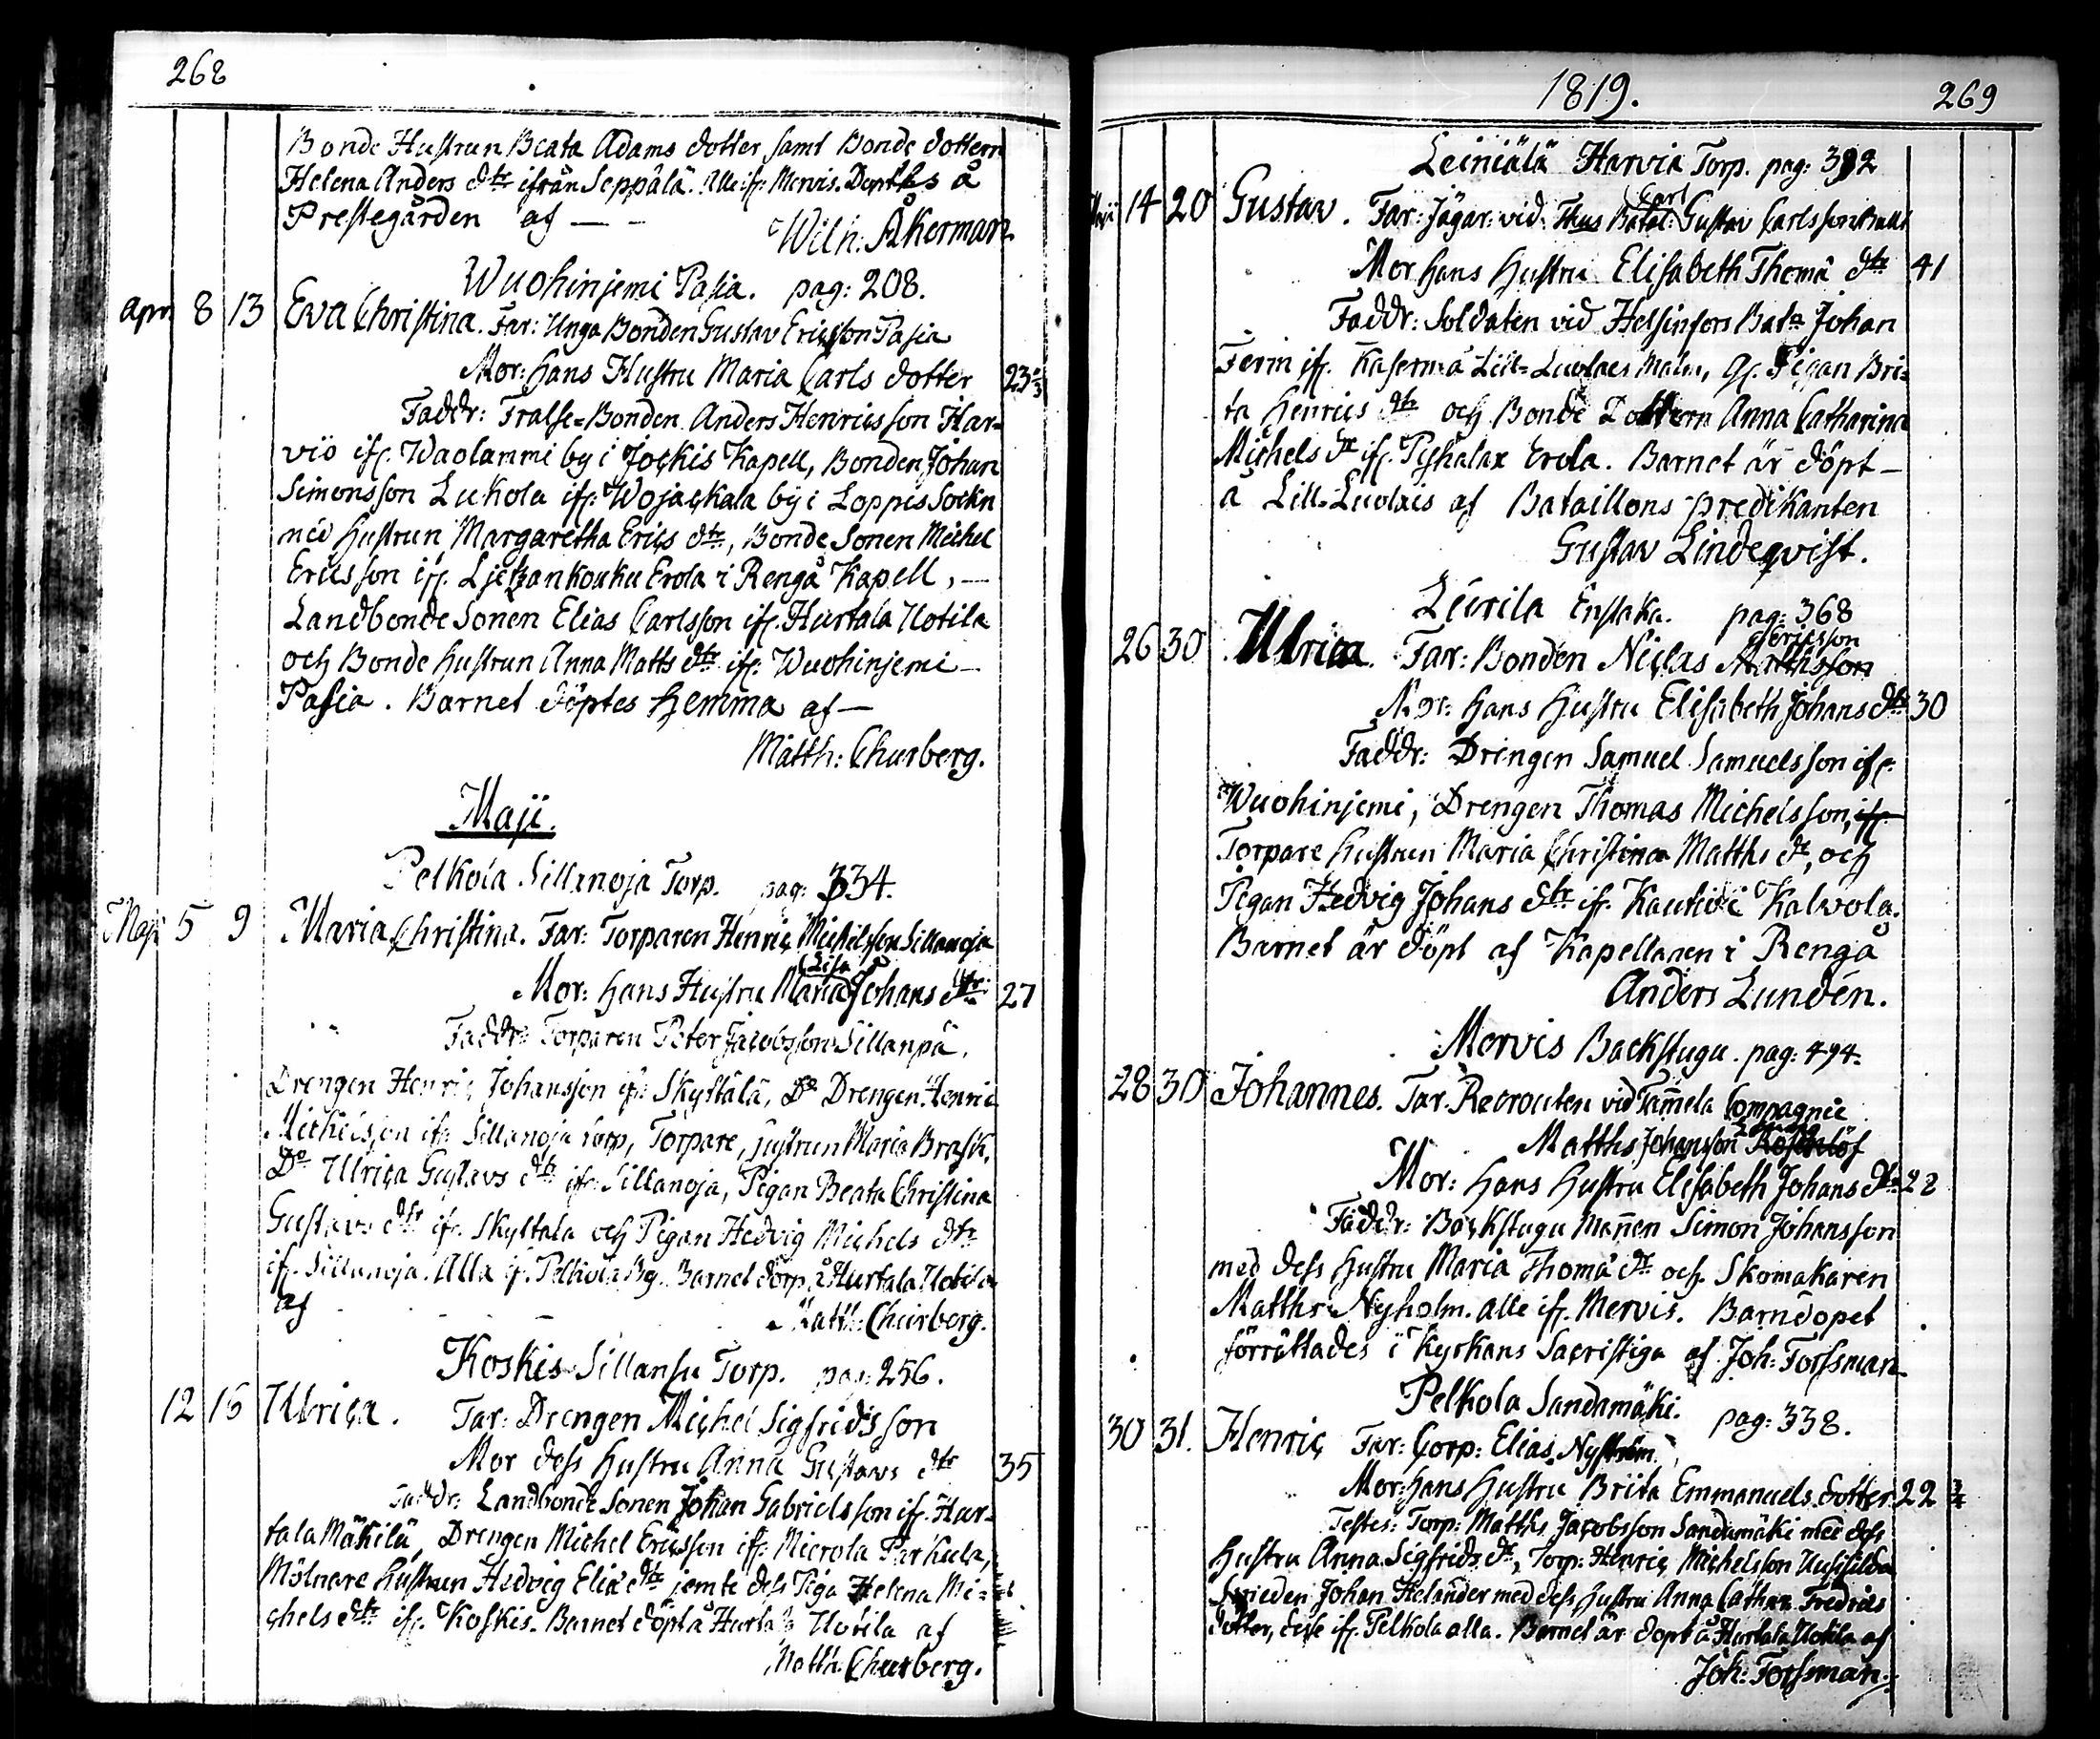 268
Bonde Hustrun Beata Adams dotter samt Bonde dottern
Helena Anders dtr ifrån Seppälä. Alle ifr. Mervis. Döptes å
Prestegården af — -
Wilh: Åkerman
Wuohinjemi Pasia. pag: 208.
Apr. 8 13 Eva Christina. Far: Unga Bonden Gustav Ericsson Pasia
Mor: Hans Hustru Maria Carls dotter 23
Faddr: Frälse=Bonden Anders Henricsson Har=
vio ifr. Waolammi by i Jockis Kapell, Bonden Johan
Simonsson Lukola ifr. Wojackala by i Loppis Sockn
med Hustrun Margaretha Erics dtr, Bonde Sonen Michel
Ericsson ifr. Ljetzankouku Erola i Rengå Kapell, —
Landbonde Sonen Elias Carlsson ifr. Hurtala Uotila
och Bonde Hustrun Anna Matts dtr ifr. Wuohinjemi —
Pasia. Barnet döptes hemma af —
Matth: Churberg.
Maji.
Pelkola Sillanoja Torp. pag: 334.
Maji 5 9 Maria Christina. Far: Torparen Henric Michelsson Sillanoja
Lisa
Mor: Hans Hustru Maria Johans dtr 27
Faddr: Torparen Peter Jacobsson Sillanpä,
Drengen Henric Johansson ifr. Skyttälä, Do Drengen Henric
Michelsson ifr. Sillanoja Torp, Torpare Hustrun Maria Brask,
Do Ulrica Gustavs dtr ifr. Sillanoja, Pigan Beata Christina
Gustavs dtr ifr. Skyttala och Pigan Hedvig Michels dtr
ifr. Sillanoja. Alla ifr. Pelkola By. Barnet döp. å Hurtala Uotila
af
Matth: Churberg.
Koskis Sillansu Torp. pag: 256.
12 16 Ulrica. Far: Drengen Michel Sigfridsson
Mor dess Hustru Anna Gustavs dtr 35
Faddr: Landbonde Sonen Johan Gabrielsson ifr. Hur=
tala Mäkilä, Drengen Michel Ericsson ifr. Mierola Parkula,
Mölnare Hustrun Hedvig Eliæ dtr jemte dess Piga Helena Mi=
chels dtr ifr. Koskis. Barnet döpt å Hurtala Uotila af
Matth: Churberg.
1819. 269
Leiniälä Harvia Torp. pag: 392
Carl
Maji 14 20 Gustav. Far: Jägar: vid Batal: Gustav Carlsson
Mor Hans Hustru Elisabeth Thomæ dtr 41
Faddr: Soldaten vid Helsinfors Batn Johan
Ferin ifr. Kaserma Lill=Luolais Malm, Gf. Pigan Bri=
ta Henrics dtr och Bonde Dottern Anna Catharina
Michels dtr ifr. Pyhälax Erola. Barnet är döpt —
å Lill-Luolais af Bataillons-predikanten
Gustav Lindeqvist.
Leurila Enstaka. pag: 368
Ericsson
26 30 Ulrica. Far: Bonden Niclas Mathsson
Mor: Hans Hustru Elisabeth Johans dtr 30
Faddr: Drengen Samuel Samuelsson ifr.
Wuohinjemi, Drengen Thomas Michelsson, ifr.
Torpare Hustrun Maria Christina Matths dtr, och
Pigan Hedvig Johans dtr ifr. i Kalvola.
Barnet är döpt af Kapellanen i Rengå
Anders Lundén.
Mervis Backstugu. pag: 494.
28 30 Johannes. Far. Recrouten vid Tam̄ela Compagnie
Matths Johansson Rosenlöf
Mor: Hans Hustru Elisabeth Johans dtr 22
Faddr: Backstugu Man̄en Simon Johansson
med dess Hustru Maria Thomæ dtr och Skomakaren
Matths Nyholm. alle ifr. Mervis. Barndopet
förrättades i Kyrkans Sacristiga af Joh: Forssman
Pelkola Sandamäki. pag: 338.
30 31. Henric Far: Corp: Elias Nyström.
Mor: Hans Hustru Brita Emmanuels dotter 22
Testes: Torp: Matths Jacobsson Sandamäki med dess
Hustru Anna Sigfrids dtr, Torp: Henric Michelsson Uusisilda
Smeden Johan Helander med dess Hustru Anna Cathar. Fredrics
dotter, desse ifr. Pelkola alla. Barnet är döpt å Hurtala Uotila af
Joh: Forssman.